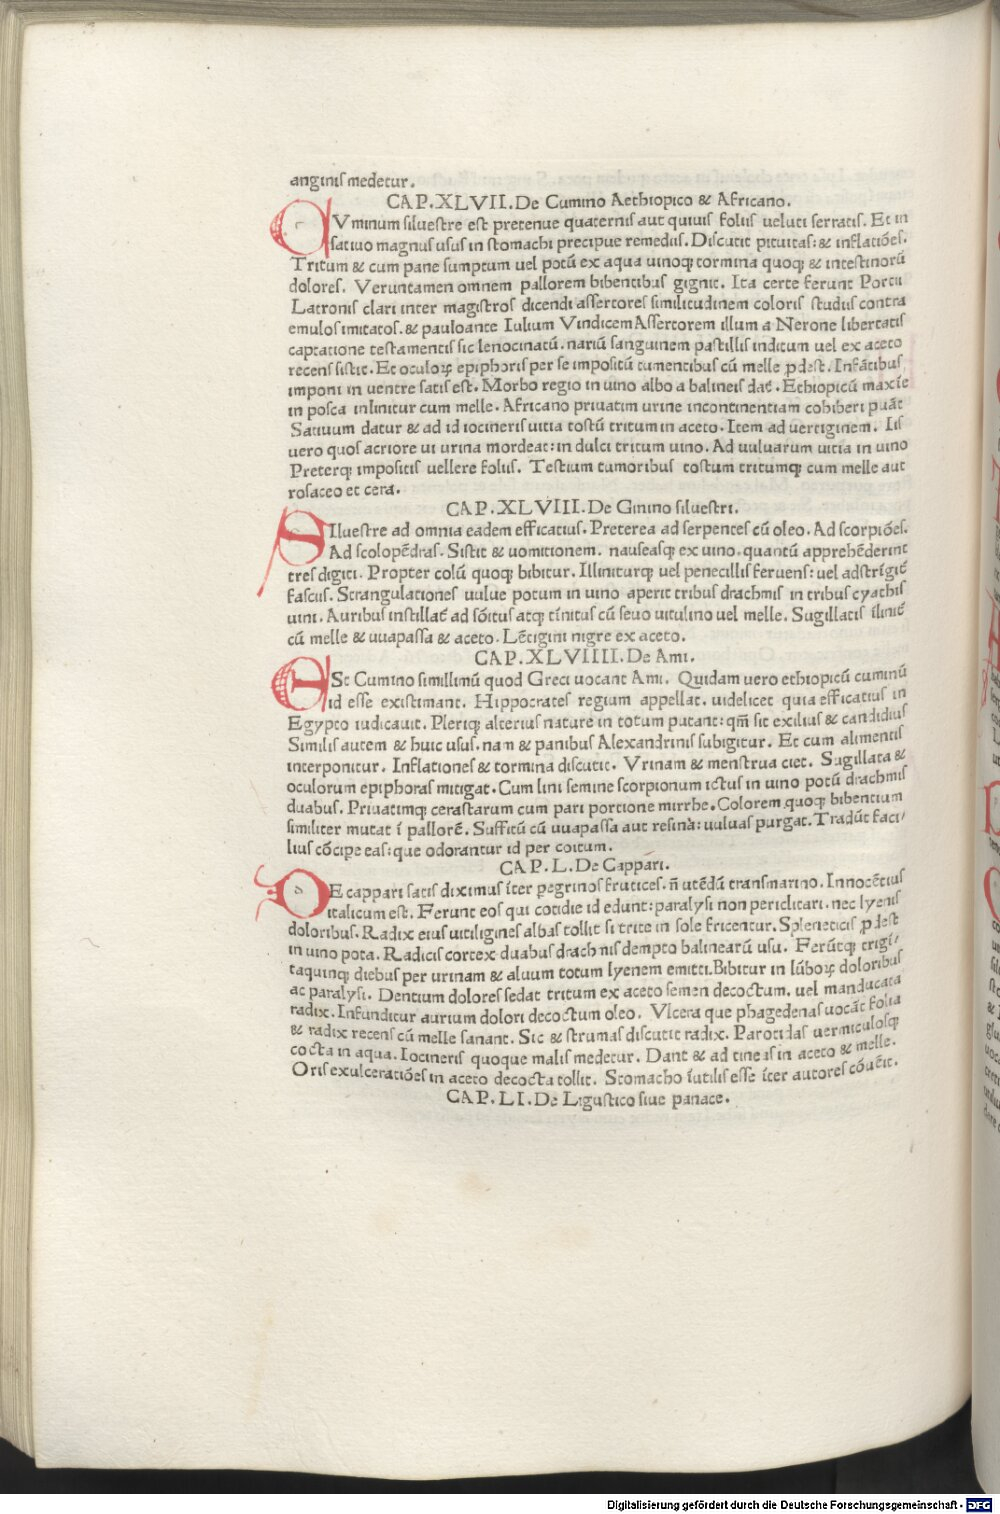 anginis medetur.
CAP.XLVII.De Cumino Aethiopico & Africano.
CVminum siluestre est pretenue quaternis aut quiuis foliis ueluti serratis. Et in
satiuo magnus usus in stomachi precipue remediis. Discutit pituitas: & inflatiōes.
Tritum & cum pane sumptum uel potū ex aqua uinoqꝫ tormina quoqꝫ & intestinorū
dolores. Veruntamen omnem pallorem bibentibus gignit. Ita certe ferunt Porcii
Latronis clari inter magistros dicendi assertores similitudinem coloris studiis contra
emulos imitatos. & pauloante Iulium Vindicem Assertorem illum a Nerone libertatis
captatione testamentis sic lenocinatū. nariū sanguinem pastillis inditum uel ex aceto
recens sistit. Et oculoꝝ epiphoris per se impositū tumentibus cū melle ꝓdest. Infātibus
imponi in uentre satis est. Morbo regio in uino albo a balineis daī. Ethiopicū maxīe
in posca inlinitur cum melle. Africano priuatim urine incontinentiam cohiberi putāt
Satiuum datur & ad id iocineris uitia tostū tritum in aceto. Item ad uertiginem. Iis
uero quos acriore ui urina mordeat: in dulci tritum uino. Ad uuluarum uitia in uino
Preterqꝫ impositis uellere foliis. Testium tumoribus tostum tritumqꝫ cum melle aut
rosaceo et cera.
CAP.XLVIII.De Ginino siluestri.
SIluestre ad omnia eadem efficatius. Preterea ad serpentes cū oleo. Ad scorpiōes.
Ad scolopēdras. Sistit & uomitionem. nauseasqꝫ ex uino. quantū apprehēderint
tres digiti. Propter colū quoqꝫ bibitur. Illiniturqꝫ uel penecillis feruens: uel adstrīgit̄
fasciis. Strangulationes uulue potum in uino aperit tribus drachmis in tribus cyathis
uini. Auribus instillat̄ ad sōitus atqꝫ tīnitus cū seuo uitulino uel melle. Sugillatis īlinit̄
cū melle & uuapassa & aceto. Lētigini nigre ex aceto.
CAP.XLVIIII.De Ami.
ESt Cumino simillimū quod Greci uocant Ami. Quidam uero ethiopicū cuminū
id esse existimant. Hippocrates regium appellat. uidelicet quia efficatius in
Egypto iudicauit. Pleriqꝫ alterius nature in totum putant: qm̄ sit exilius & candidius
Similis autem & huic usus. nam & panibus Alexandrinis subigitur. Et cum alimentis
interponitur. Inflationes & tormina discutit. Vrinam & menstrua ciet. Sugillata &
oculorum epiphoras mitigat. Cum lini semine scorpionum ictus in uino potū drachmis
duabus. Priuatimqꝫ cerastarum cum pari portione mirrhe. Colorem quoqꝫ bibentium
similiter mutat ī pallorē. Suffitū cū uuapassa aut resina: uuluas purgat. Tradūt faci/
lius cōcipe eas: que odorantur id per coitum.
CAP.L.De Cappari.
DE cappari satis diximus īter pegrinos frutices. n̄ utēdū transmarino. Innocētius
italicum est. Ferunt eos qui cotidie id edunt: paralysi non periclitari. nec lyenis
doloribus. Radix eius uitiligines albas tollit si trite in sole fricentur. Spleneticis ꝓdest
in uino pota. Radicis cortex duabus drachmis dempto balinearū usu. Ferūtqꝫ trigī/
taquinqꝫ diebus per urinam & aluum totum lyenem emitti. Bibitur in lūboꝝ doloribus
ac paralysi. Dentium dolores sedat tritum ex aceto semen decoctum. uel manducata
radix. Infunditur aurium dolori decoctum oleo. Vlcera que phagedenas uocāt folia
& radix recens cū melle sanant. Sic & strumas discutit radix. Parotidas uermiculosqꝫ
cocta in aqua. Iocineris quoque malis medetur. Dant & ad tineas in aceto & melle.
Oris exulceratiōes in aceto decocta tollit. Stomacho īutilis esse īter autores cōuēit.
CAP.LI.De Ligustico siue panace.
Digitalisierung gefördert durch die Deutsche Forschungsgemeinschaft - DFG